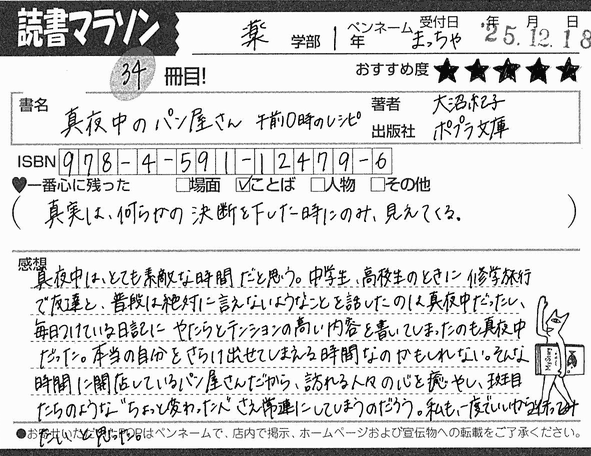 読書マラソン
薬 学部 1 年 ペンネーム まっちゃ 受付日 '25.12.18 年 月 日
34 冊目! おすすめ度 ★★★★★
書名 真夜中のパン屋さん 午前0時のレシピ 著者 大沼紀子
出版社 ポプラ文庫
ISBN 978-4-591-12479-6
♥一番心に残った □場面 ☑ことば □人物 □その他
(真実は、何らかの決断を下した時にのみ、見えてくる。)
感想
真夜中は、とても素敵な時間だと思う。中学生、高校生のときに修学旅行
で友達と、普段は絶対に言えないようなことを話したのは真夜中だったし、
毎日つけている日記に やたらとテンションの高い内容を書いてしまったのも真夜中
だった。本当の自分をさらけ出せてしまえる時間なのかもしれない。そんな
時間に開店しているパン屋さんだから、訪れる人々の心を癒やし、斑目
たちのような"ちょっと変わった人"さえ常連にしてしまうのだろう。私も、一度でいいから行ってみ
たい、と思った。
●お寄せいただいたPOPはペンネームで、店内で掲示、ホームページおよび宣伝物への転載をご了承ください。